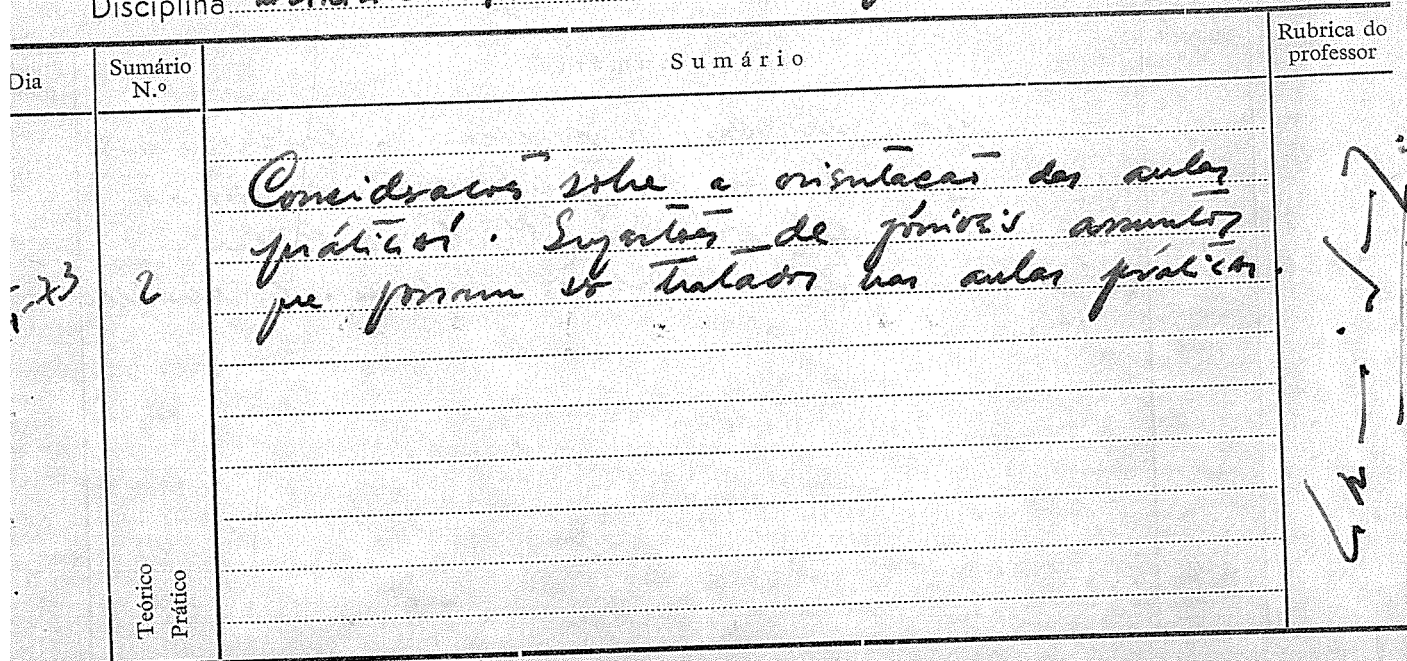 Disciplina
Dia
Sumário N.º
Sumário
Rubrica do professor
73
2
Considerações sobre a orientação das aulas
práticas. Sugestões de possíveis assuntos
que possam ser tratados nas aulas práticas.
Teórico
Prático